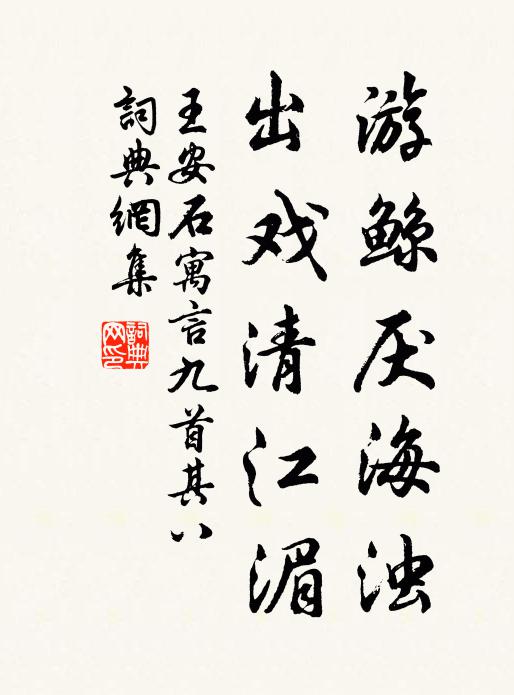 游鲸厌海浊
出戏清江湄
王安石寓言九首其八
詞典網集
詞典網印